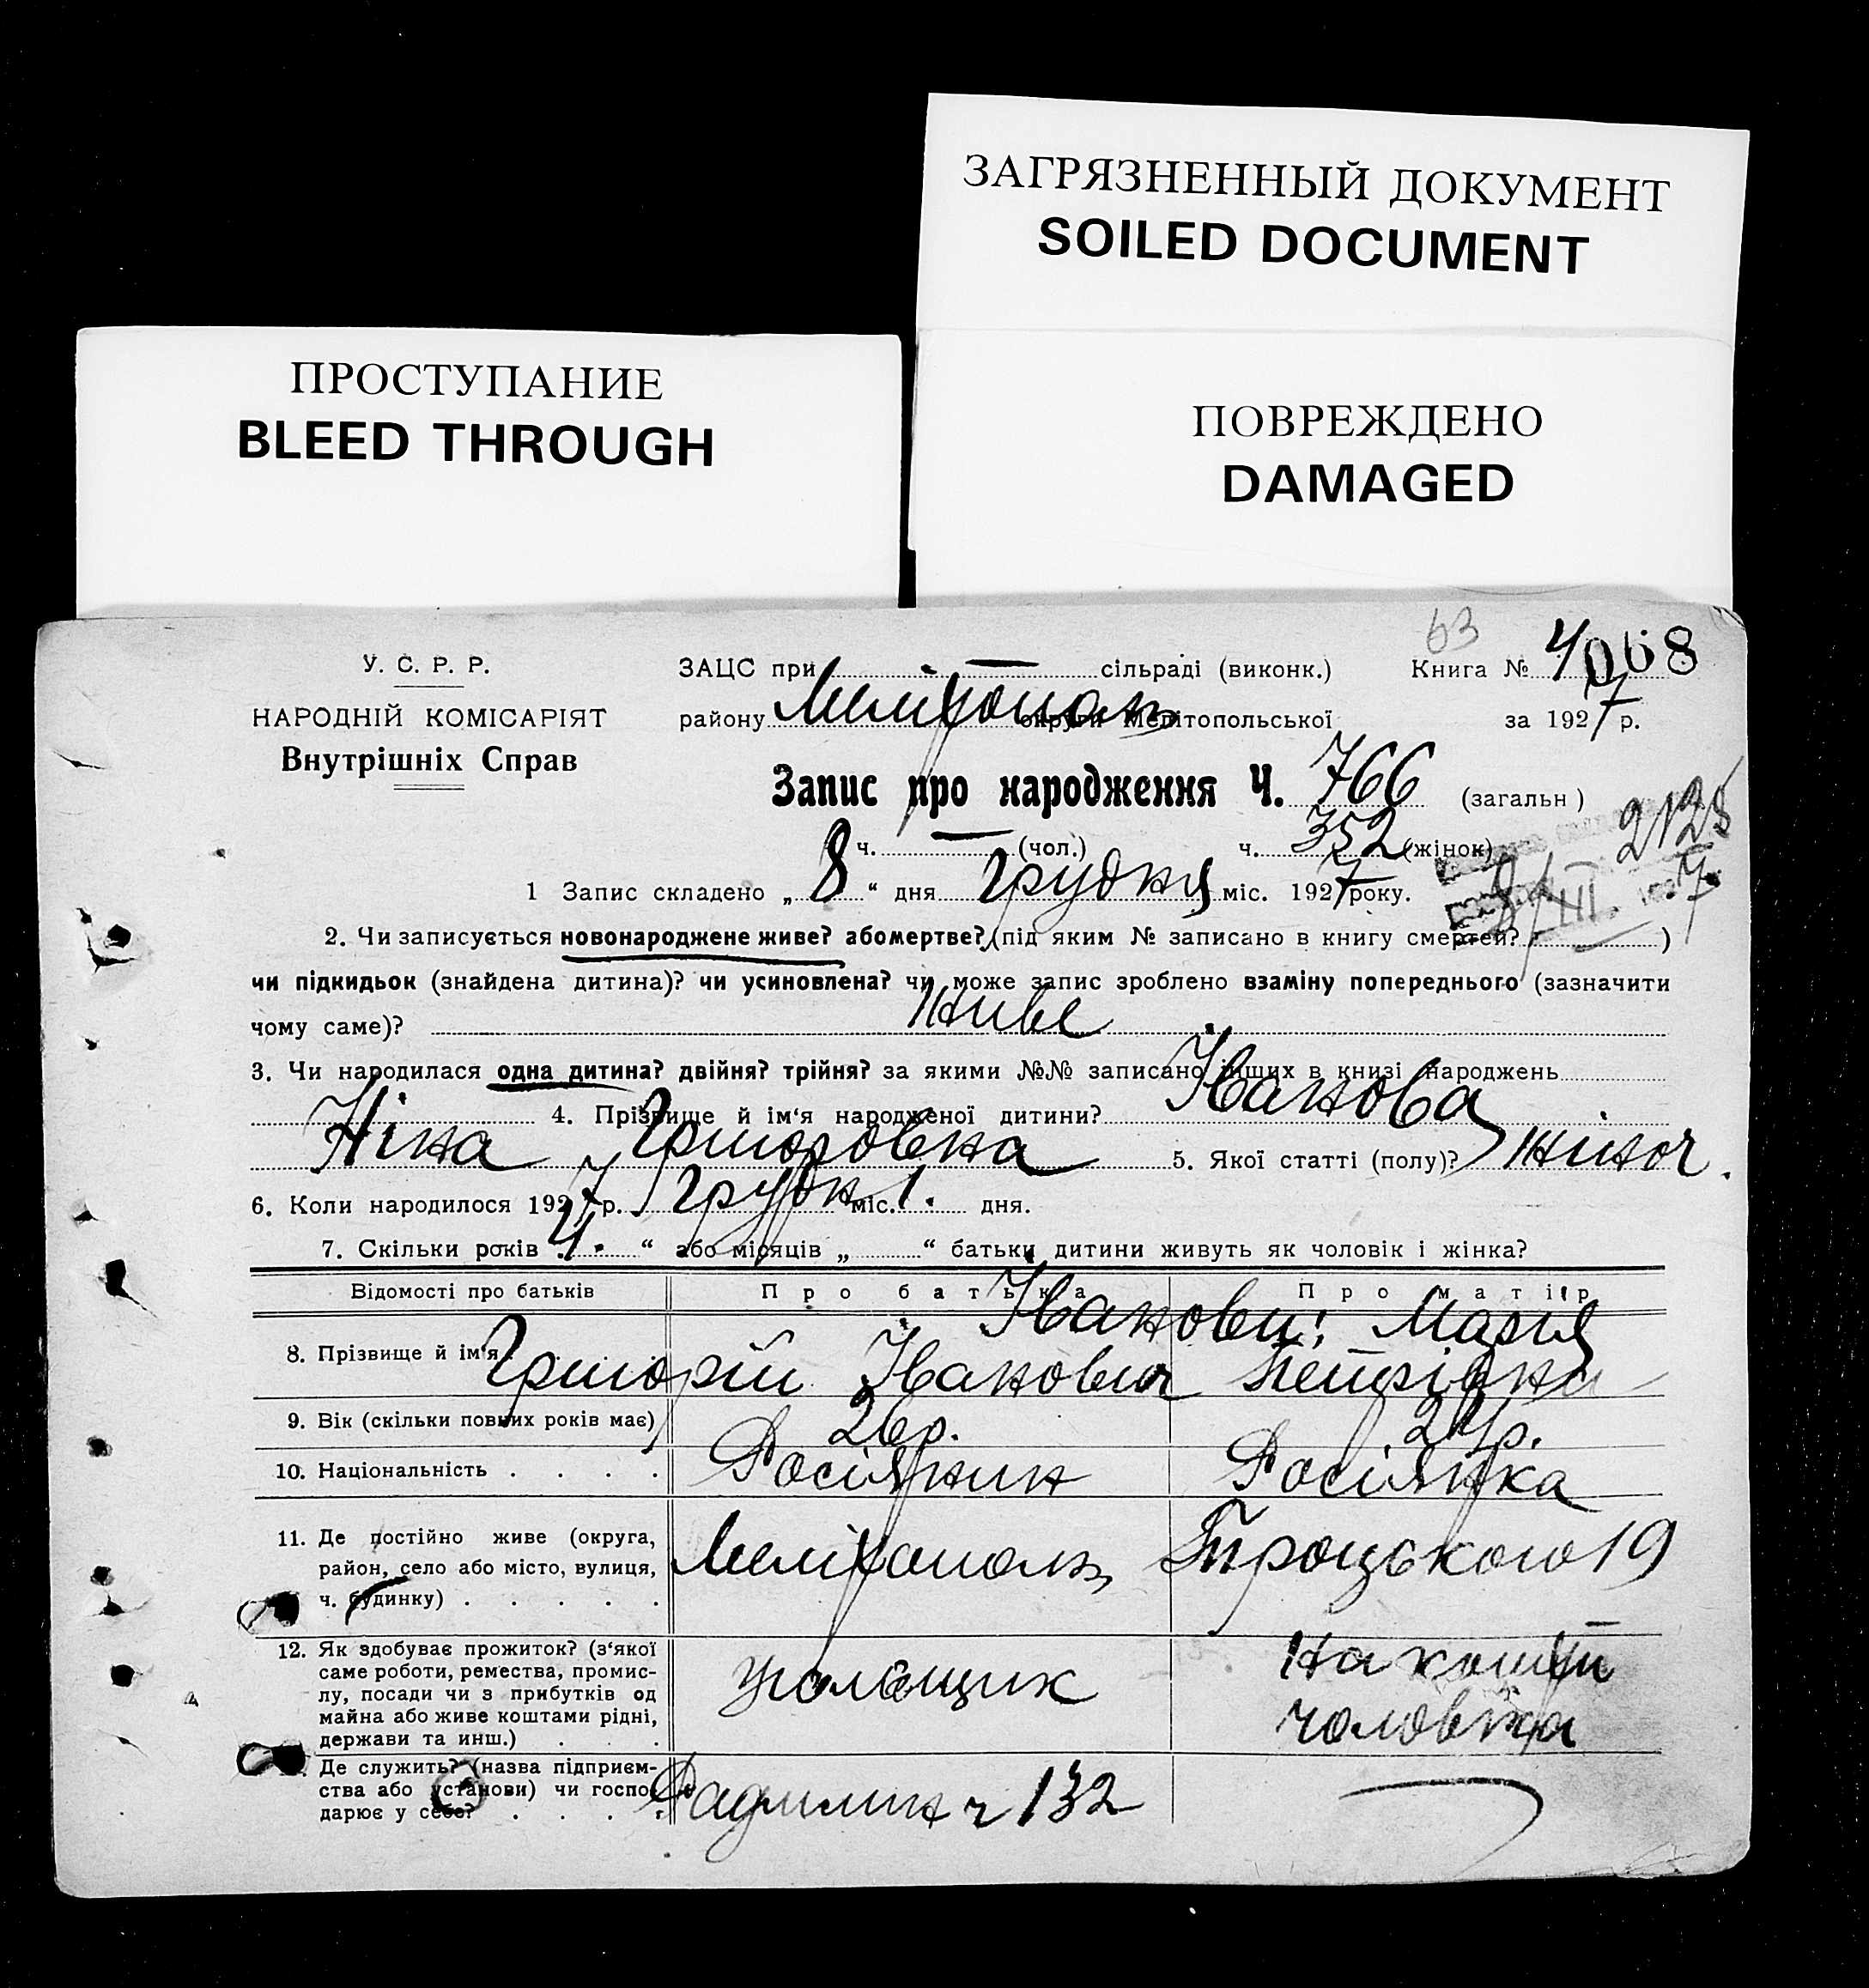 ЗАГРЯЗНЕННЫЙ ДОКУМЕНТ
SOILED DOCUMENT
ПРОСТУПАНИЕ
BLEED THROUGH
ПОВРЕЖДЕНО
DAMAGED
63
У. С. Р. Р.
НАРОДНІЙ КОМІСАРІЯТ
Внутрішніх Справ
ЗАЦС при — сільраді (виконк.) Книга № 4068
району Мелітополь округи Мелітопольської за 1927 р.
Запис про народження Ч. 766 (загальн )
ч. — (чол.) ч. 352 (жінок)
1 Запис складено „ 8 “ дня Грудня міс. 1927 року.
2. Чи записується новонароджене живе? або мертве? (під яким № записано в книгу смертей? )
чи підкидьок (знайдена дитина)? чи усиновлена? чи може запис зроблено взаміну попереднього (зазначити
чому саме)? живе
3. Чи народилася одна дитина? двійня? трійня? за якими №№ записано інших в книзі народжень
4. Прізвище й ім‘я народженої дитини? Іванова
Ніна Григоровна 5. Якої статті (полу)? жіноч.
6. Коли народилося 1927 р. Грудн міс. 1. дня.
7. Скільки років „ 4. “ або місяців „ “ батьки дитини живуть як чоловік і жінка?
Відомості про батьків Про батька Про матір
8. Прізвище й ім‘я Івановы: Марія
Григорій Іванович Петрівна
9. Вік (скільки повних років має) 26р. 24р.
10. Національність . . . . Росіянин Росіянка
11. Де постійно живе (округа,
район, село або місто, вулиця,
ч. будинку) . . . . .
Мелітополь, Троцького 19
12. Як здобуває прожиток? (з‘якої
саме роботи, ремества, промис-
лу, посади чи з прибутків од
майна або живе коштами рідні,
держави та инш.) . . .
на кошти
чоловіка
Де служить? (назва підприєм-
ства або установи) чи госпо-
дарює у себе? . . . .
ч 132